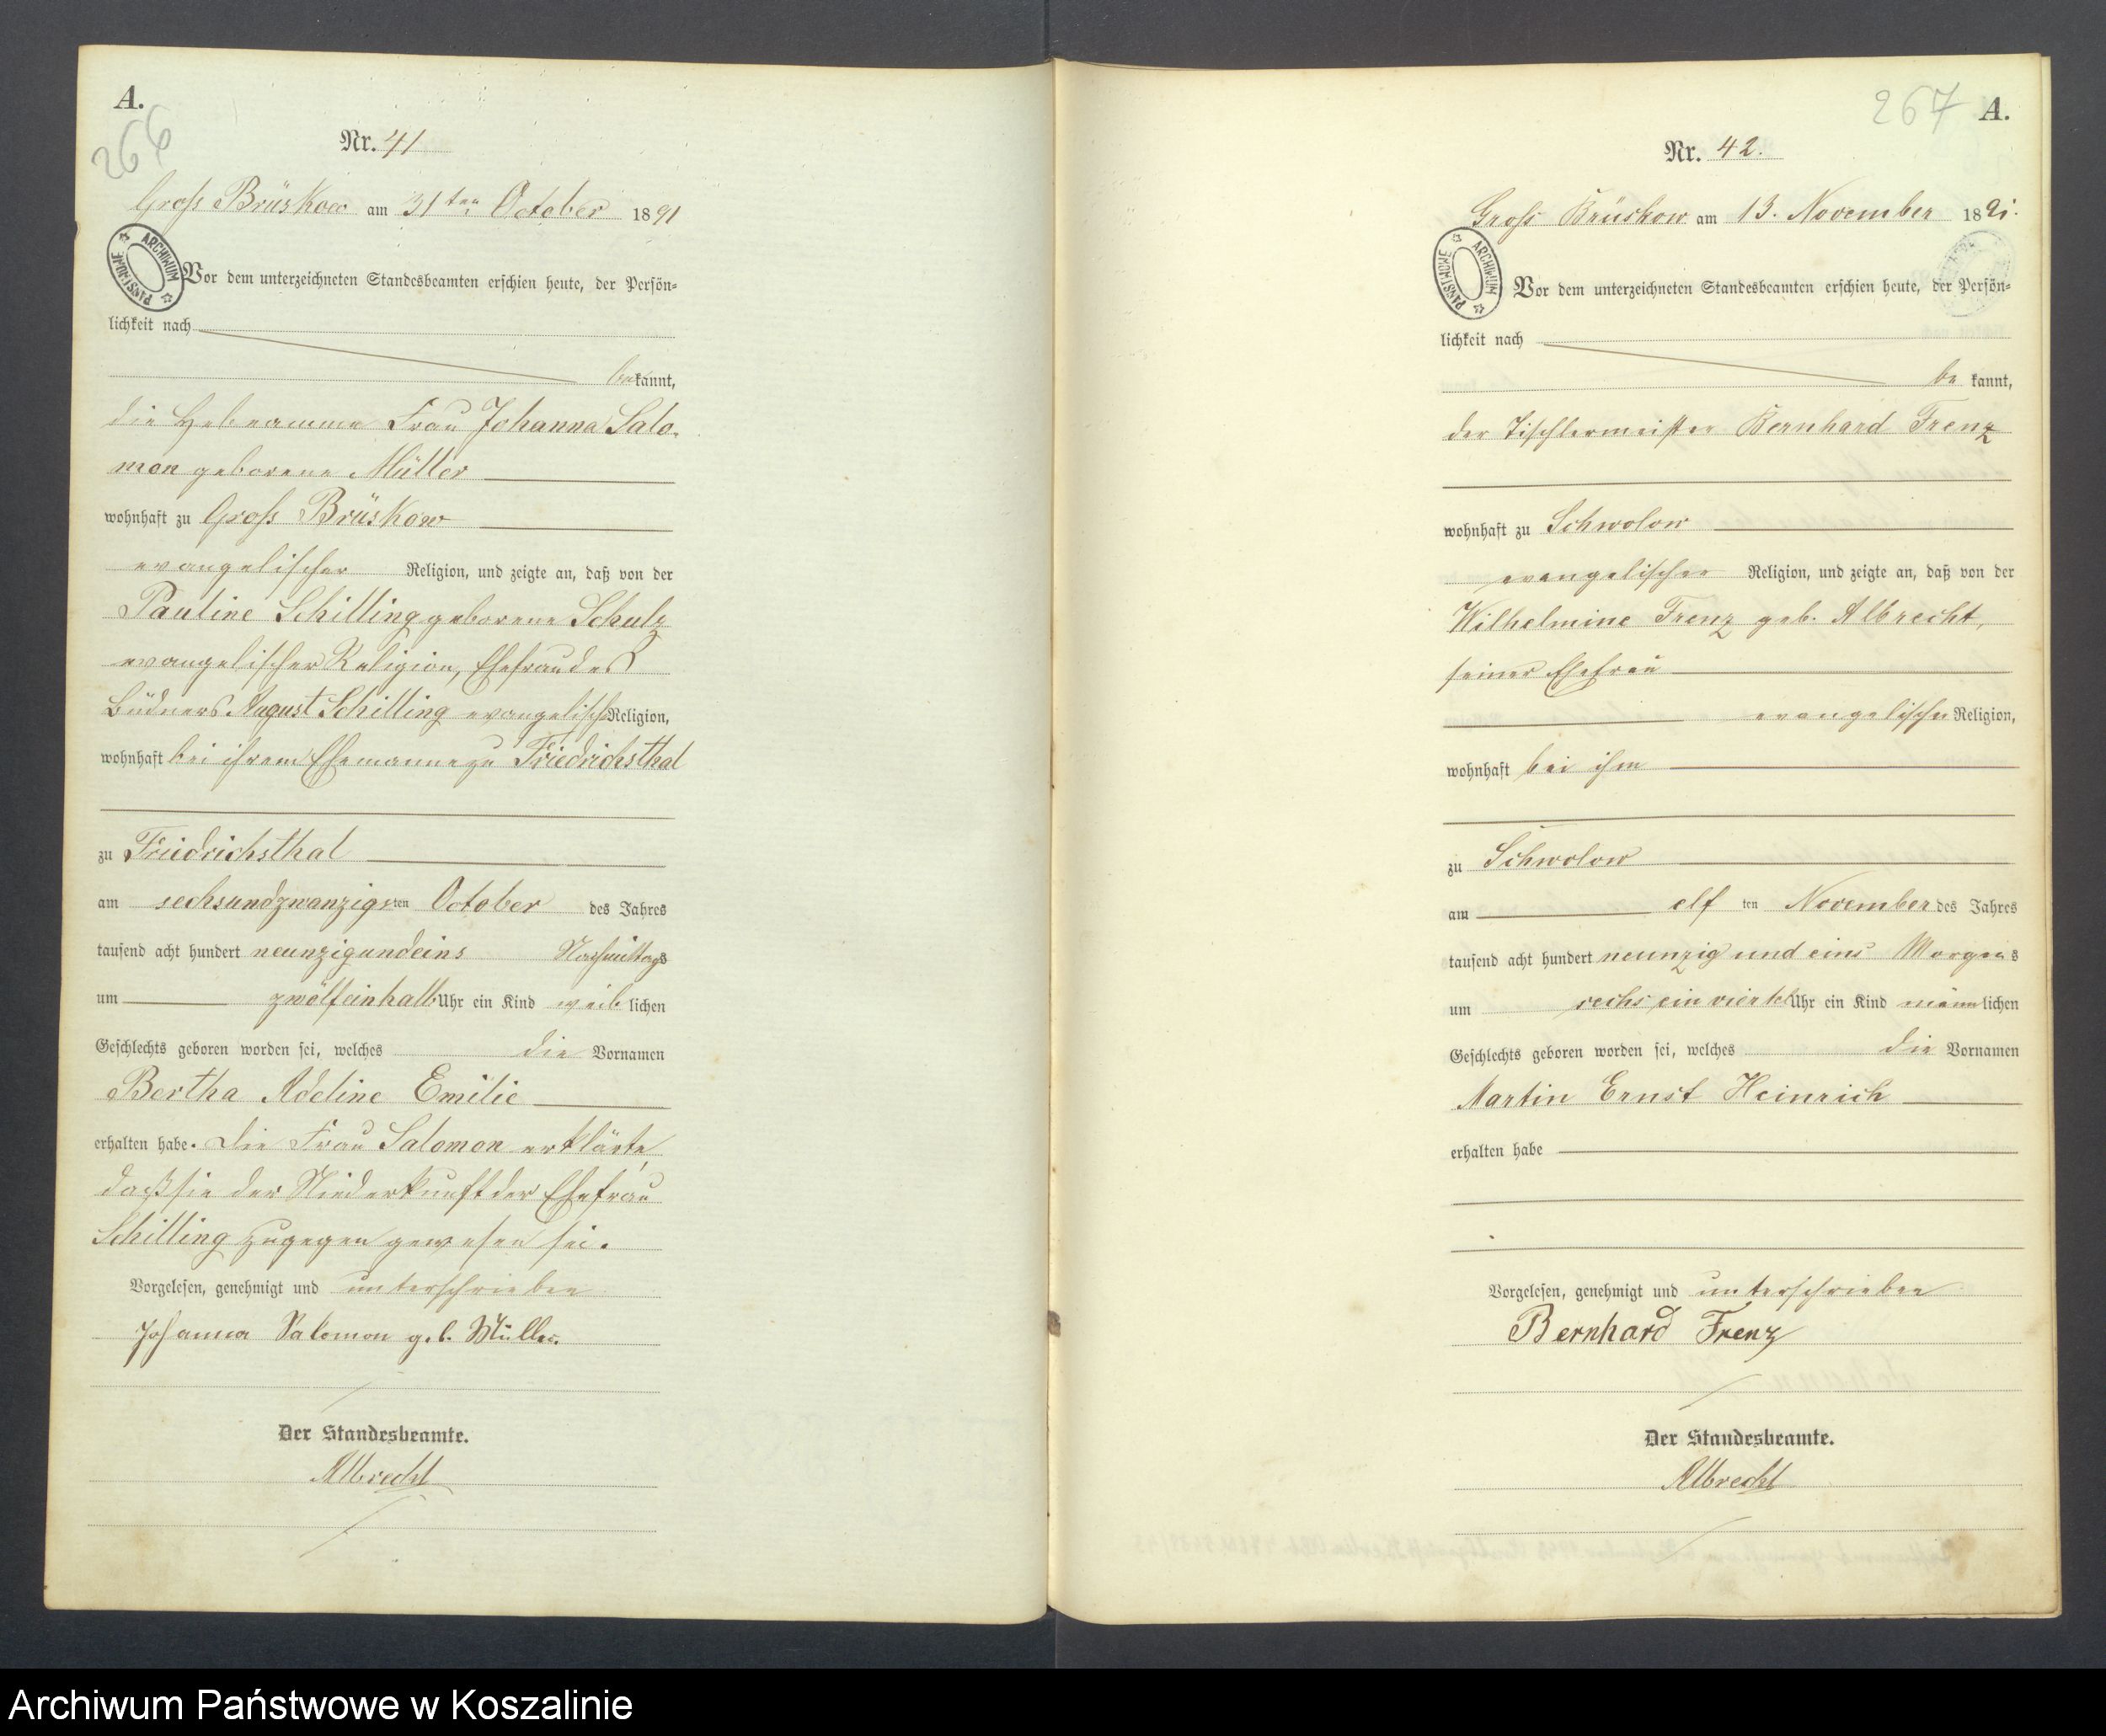 A.
266
Nr. 41
Groß Brüskow am 31ten October 1891
ARCHIWUM PAŃSTWOWE
Vor dem unterzeichneten Standesbeamten erschien heute, der Persön=
lichkeit nach
bekannt,
die Hebeamme Frau Johanna Salo-
mon geborene Müller
wohnhaft zu Groß Brüskow
evangelischer Religion, und zeigte an, daß von der
Pauline Schilling geborene Schulz
evangelischer Religion, Ehefrau des
Büdners August Schilling evangelisch Religion,
wohnhaft bei ihrem Ehemanne zu Friedrichsthal
zu Friedrichsthal
am sechsundzwanzigsten October des Jahres
tausend acht hundert neunzigundeins Nachmittags
um zwölfeinhalb Uhr ein Kind weiblichen
Geschlechts geboren worden sei, welches die Vornamen
Bertha Adeline Emilie
erhalten habe. Die Frau Salomon erklärte,
daß sie der Niederkunft der Ehefrau
Schilling zugegen gewesen sei.
Vorgelesen, genehmigt und unterschrieben
Johanna Salomon geb. Müller.
Der Standesbeamte.
Albrecht
267
A.
Nr. 42.
Groß Brüskow am 13. November 1891.
ARCHIWUM PAŃSTWOWE
Vor dem unterzeichneten Standesbeamten erschien heute, der Persön=
lichkeit nach
be kannt,
der Tischlermeister Bernhard Frenz
wohnhaft zu Schwolow
evangelischer Religion, und zeigte an, daß von der
Wilhelmine Frenz geb. Albrecht,
seiner Ehefrau
evangelischer Religion,
wohnhaft bei ihm
zu Schwolow
am elf ten November des Jahres
tausend acht hundert neunzig und eins Morgens
um sechs ein viertel Uhr ein Kind männlichen
Geschlechts geboren worden sei, welches die Vornamen
Martin Ernst Heinrich
erhalten habe
Vorgelesen, genehmigt und unterschrieben
Bernhard Frenz
Der Standesbeamte.
Albrecht
Archiwum Państwowe w Koszalinie